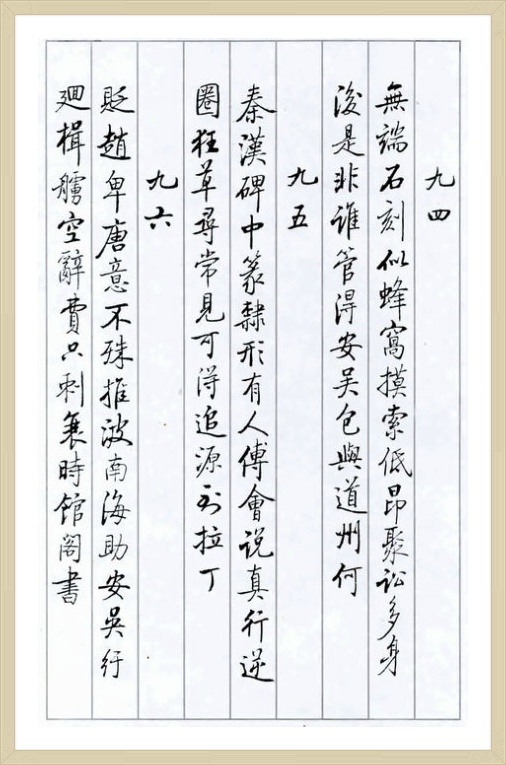 九四
無端石刻似蜂窩摸索低昂聚訟多身
後是非誰管得安吴包與道州何
九五
秦漢碑中篆隸形有人傅會説真行逆
圈狂草尋常見可得追源到拉丁
九六
貶趙卑唐意不殊推波南海助安吴紆
廻楫艣空辭費只刺衰時館閣書